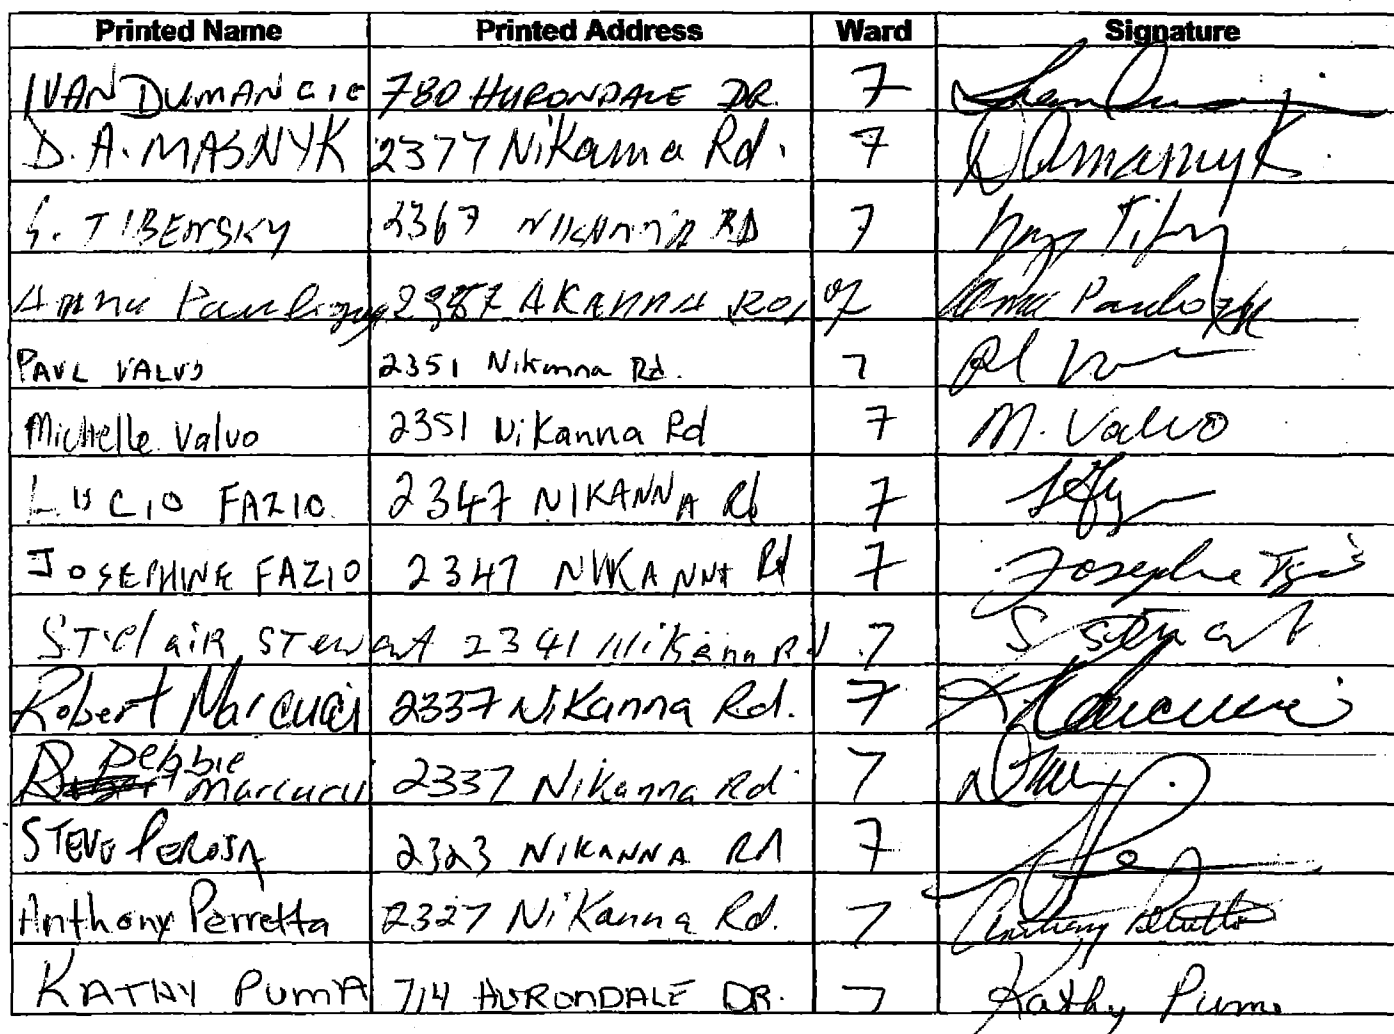 Printed Name Printed Address Ward Signature
IVAN DUMANCIC 780 HURONDALE DR. 7
D. A. MASNYK 2377 Nikanna Rd. 7 DAMasnyk
S. TIBENSKY 2367 NIKANNA RD 7
Anna 7 Anna
PAUL VALVO 2351 Nikanna Rd. 7
Michelle Valvo 2351 Nikanna Rd 7 M. Valvo
LUCIO FAZIO. 2347 NIKANNA Rd 7
JOSEPHINE FAZIO 2347 NIKANNA Rd 7 Josephine
STClaiR STewart 2341 Nikanna Rd 7 S Stewart
Robert Marcucci 2337 Nikanna Rd. 7
Debbie Marcucci 2337 Nikanna Rd 7
STEVE PEROSA 2323 NIKANNA RD 7
Anthony Perretta 2327 Nikanna Rd. 7 Anthony Perretta
KATHY PUMA 714 HURONDALE DR. 7 Kathy Puma